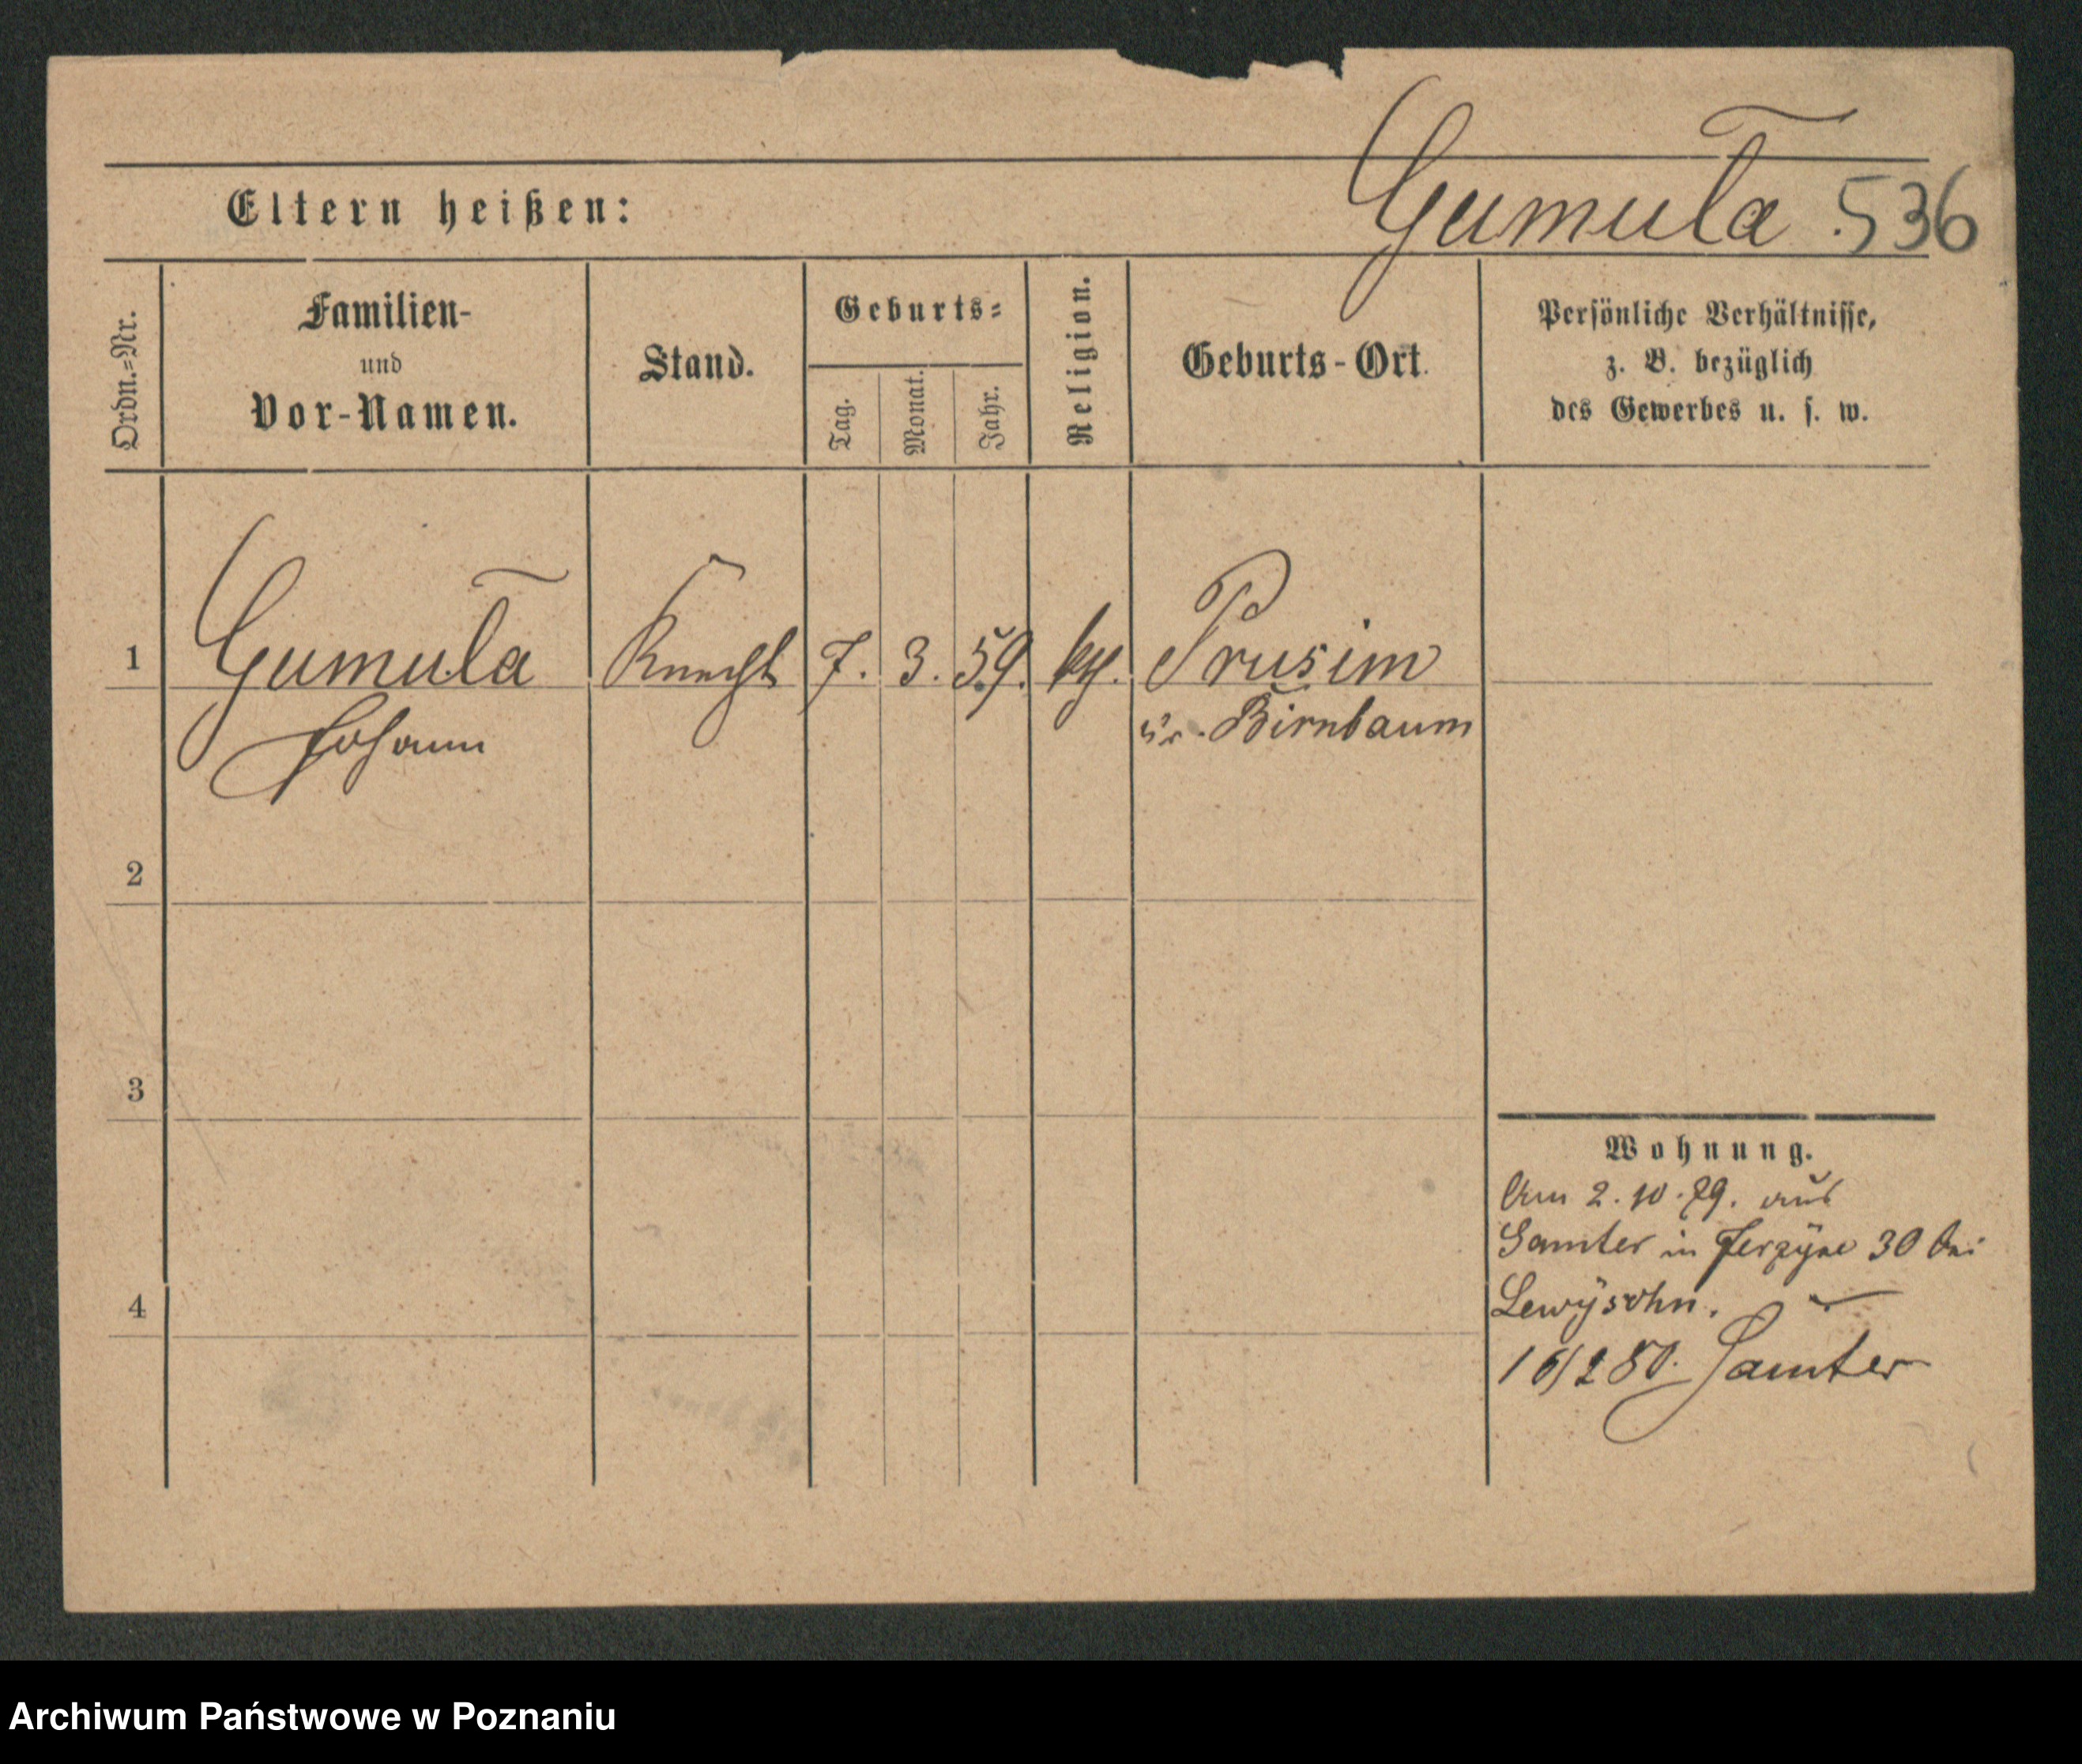 Gumuła 536
Eltern heißen:
Ordn.=Nr.
Familien-
und
Vor-Namen.
Stand.
Geburts=
Tag.
Monat.
Jahr.
Religion.
Geburts-Ort.
Persönliche Verhältnisse,
z. B. bezüglich
des Gewerbes u. s. w.
1 Gumuła Knecht 7. 3. 59. kg. Prusim
Johann Kr. Birnbaum
2
3
4
Wohnung.
Am 2. 10. 79. aus
Samter in 30 bei
Lewÿsohn.
16/2 80. Samter
Archiwum Państwowe w Poznaniu